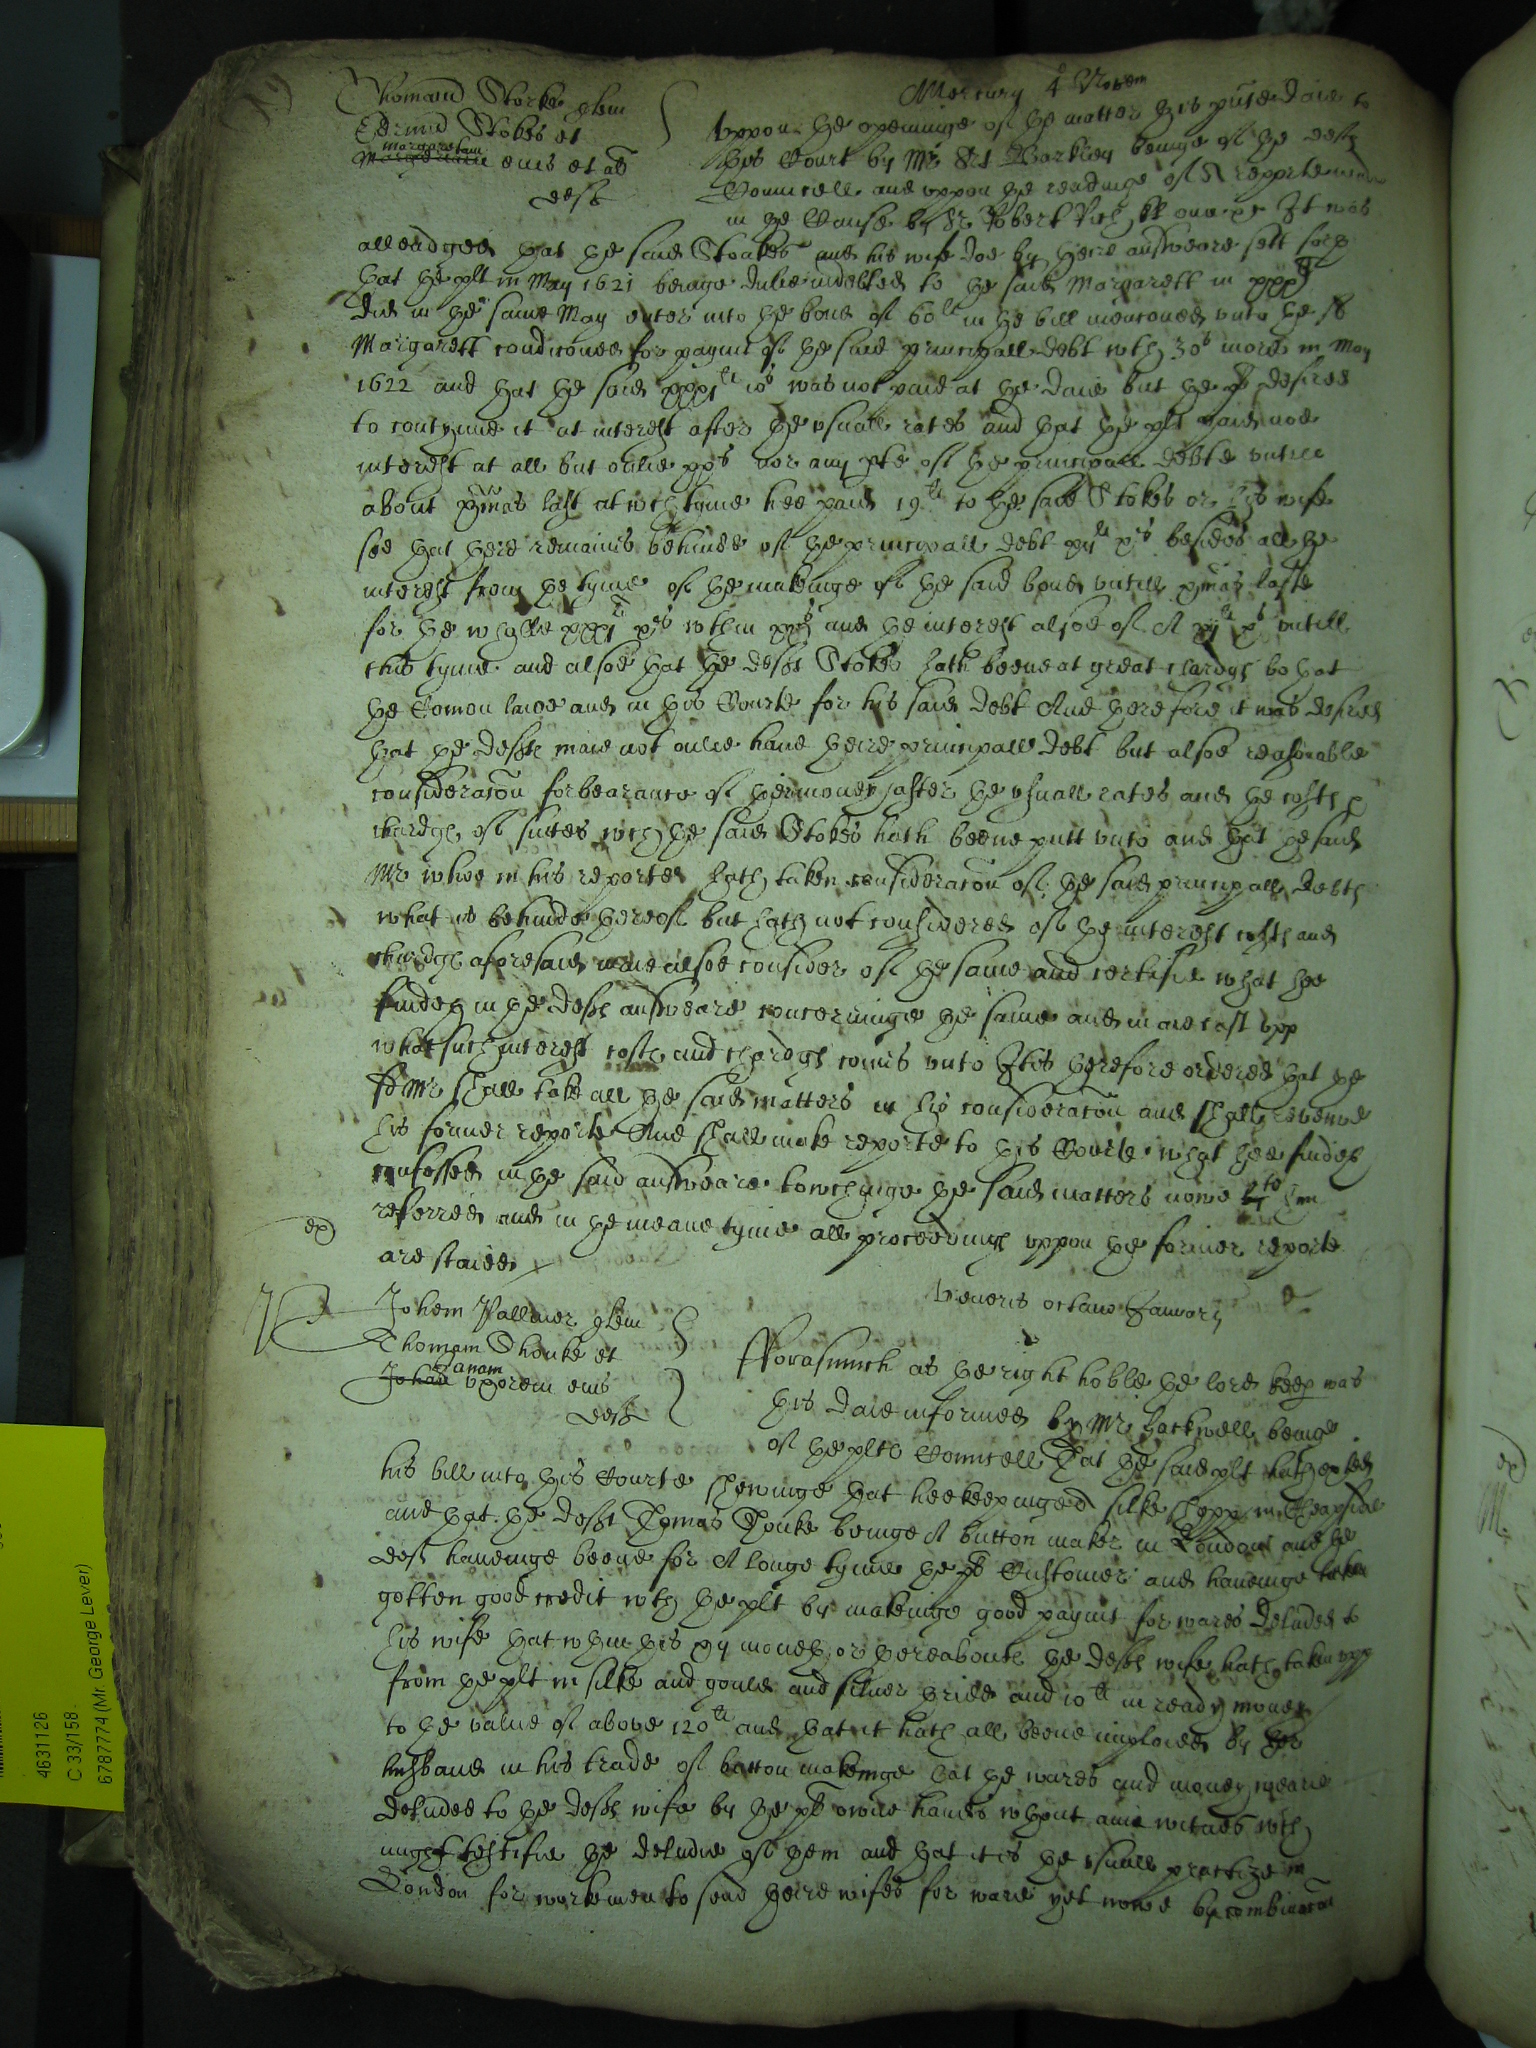 Mercury 4o Novem
Thomand Storke plem
Edrmud Stokes et
margaretam
eius et at
deft
Uppon the openinge of the matter this pnte daie to
this Court by Mr Barkley beinge of the defts
Councell and uppon the readinge of A reporte made
in the Cause by Sr Robert Rich It was
alleadged that the said Stoakes and his wife doe by theire answeare sett forth
that the plt in May 1621 beinge dulie indebted to the said Margarett in xxxli
did in the same May enter into the bond of 60li in the bill menconed unto the sd
Margarett condiconed for paymt of the said principall debt wth 30s more in May
1622 and that the said xxxjli xs was not paid at the daie but the plt desired
to contynue it at interest after the usuall rates and that the plt paid noe
interest at all but onlie xxs nor any pte of the principall debte untill
about xpmas last at wch tyme hee paid 19li to the said Stokes or his wife
soe that there remaines behinde of the principall debt xijli xs besides all the
interest from the tyme of the makeinge of the said bond untill xpmas laste
for the whole xxxjli xs wthin xxs and the interest alsoe of A xijli xs untill
this tyme and alsoe that the deft Stokes hath beene at great chardges both at
the Comon lawe and in this Courte for his said debt And therefore it was desired
that the defts maie not onlie have theire principall debt but alsoe reasonable
consideracon forbearance of their money after the usuall rates and the costs &
chardges of suites wch the said Stokes hath beene putt unto and that the said
Mr whoe in his reporte hath taken consideracon of the said principall debt &
what is behinde thereof but hath not considered of the interest costs and
chardges aforesaid maie alsoe consider of the same and certifie what hee
findeth in the defts answeare concerninge the same and maie cast upp
what such interest costs and chardges comes unto It is therefore ordered that the
sd Mr shall take all the said matters in his consideracon and shall reveiwe
his former reporte And shall make reporte to this Courte what hee findeth
confessed in the said answeare towchinge the said matters nowe to him
referred and in the meane tyme all proceedings uppon the former reporte
ex
are staied
Veneris octavo January
Johem Pallmer plem
Thomam Shouke et
Janam
Johan uxorem eius
deft
Fforasmuch as the right hoble the lord keep was
this daie informed by Mr Hackwell beinge
of the plts Councell That the said plt hath exhited
his bill into this Courte shewinge that hee keepinge A silke shopp in Cheapside
and that the deft Thomas Shouke beinge A button maker in London and the
deft haveinge beene for A longe tyme the plts Customer and haveinge
gotten good credit wth the plt by makeinge good paymt for wares delivred to
his wife that wthin this xij moneth or thereabouts the defts wife hath taken upp
from the plt in silke and gould and silver thrid and 10li in ready money
to the value of above 120li and that it hath all beene imploied by her
husband in his trade of button makeinge That the wares and money weare
delivred to the defts wife by the plts owne hands wthout anie witnes wch
might testifie the deliverie of them and that it is the usuall practize in
London for workemen to send theire wifes for ware yet nowe by combinacon
4631126
C 33/158
6787774 (Mr. George Lever)